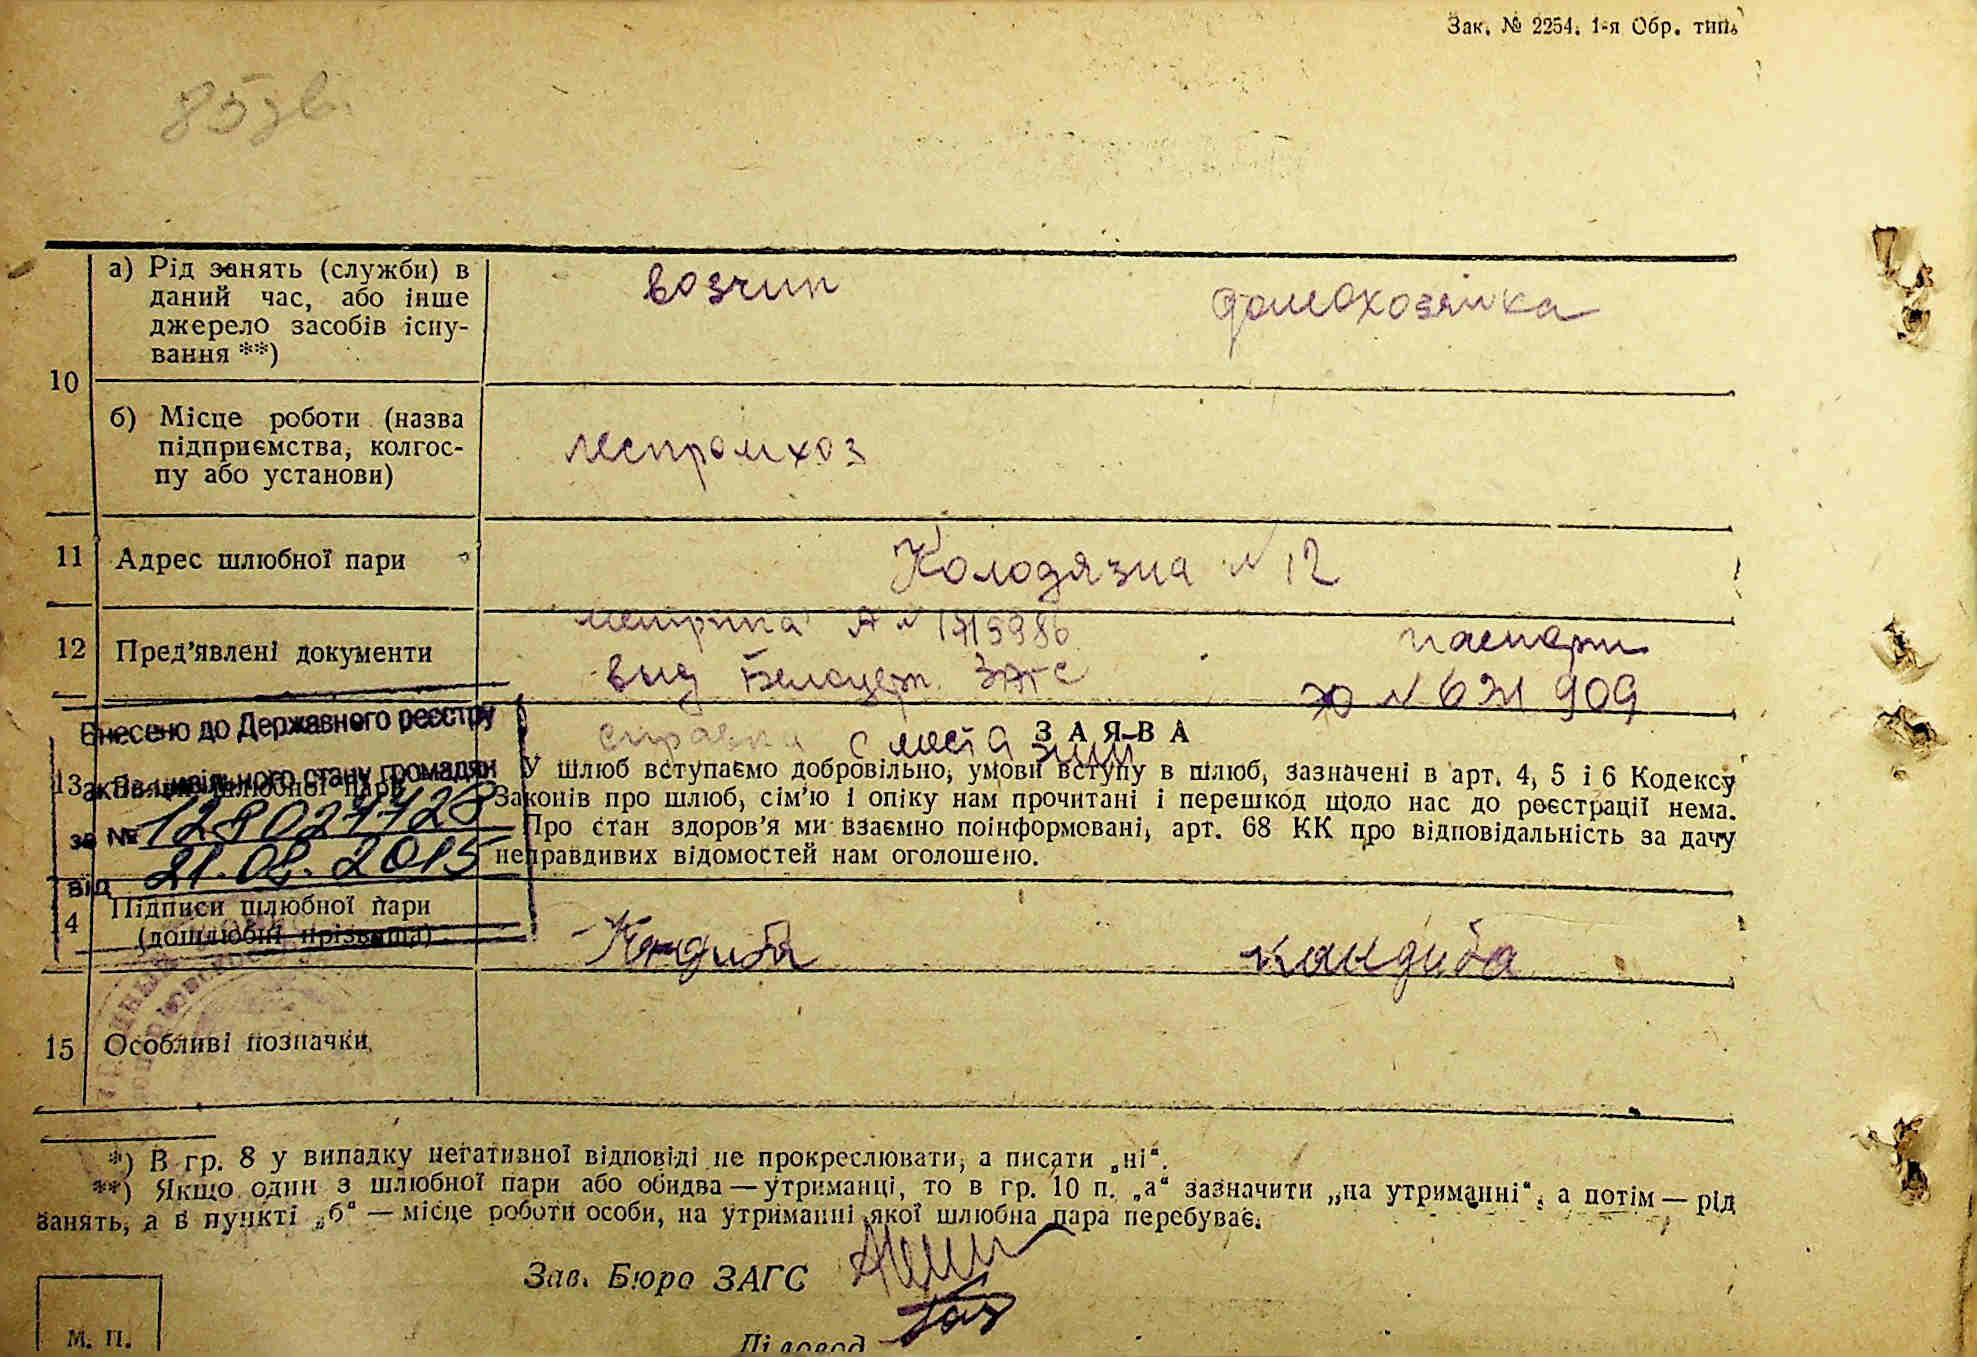 Зак. № 2254. 1-я Обр. тип.
85 зв.
10
а) Рід занять (служби) в
даний час, або інше
джерело засобів існу-
вання **)
возчик
домохозяйка
б) Місце роботи (назва
підприємства, колгос-
пу або установи)
леспромхоз
11
Адрес шлюбної пари
Колодязна № 12
12
Пред’явлені документи
метрика
выд Белоцерк. ЗАГС
справка с места
паспорт
№ 621 909
Внесено до Державного реєстру
цивільного стану громадян
за №
від 21.08.2015
13
ЗАЯВА
У шлюб вступаємо добровільно, умови вступу в шлюб, зазначені в арт. 4, 5 і 6 Кодексу
Законів про шлюб, сім’ю і опіку нам прочитані і перешкод щодо нас до реєстрації нема.
Про стан здоров’я ми взаємно поінформовані, арт. 68 КК про відповідальність за дачу
неправдивих відомостей нам оголошено.
4
Підписи шлюбної пари
(дошлюбні прізвища)
Кандиба
кандиба
15
Особливі позначки
*) В гр. 8 у випадку негативної відповіді не прокреслювати, а писати „ні“.
**) Якщо один з шлюбної пари або обидва — утриманці, то в гр. 10 п. „а“ зазначити „на утриманні“, а потім — рід
занять, а в пункті „б“ — місце роботи особи, на утриманні якої шлюбна пара перебуває.
Зав. Бюро ЗАГС
Діловод
М. П.